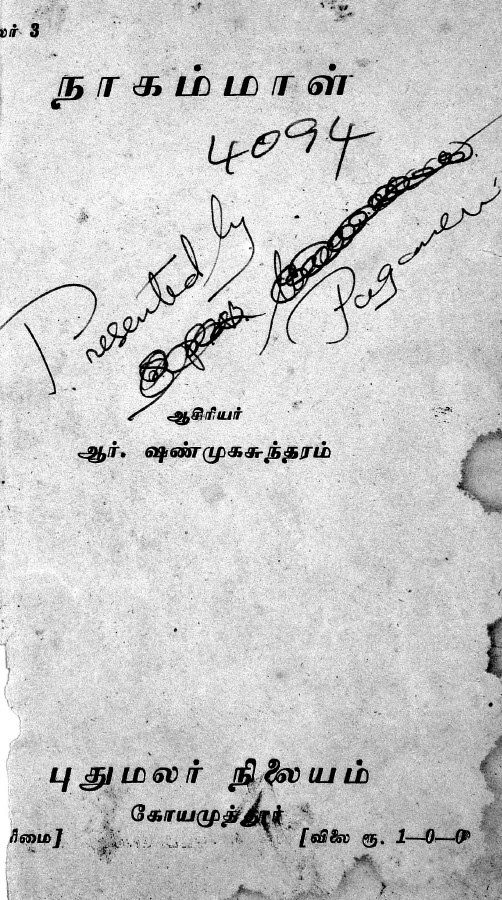 லர் 3
நாகம்மாள்
4094
Presented by
Paganeri
ஆசிரியர்
ஆர். ஷண்முகசுந்தரம்
புதுமலர் நிலையம்
கோயமுத்தூர்
ரிமை] [விலை ரூ. 1—0—0